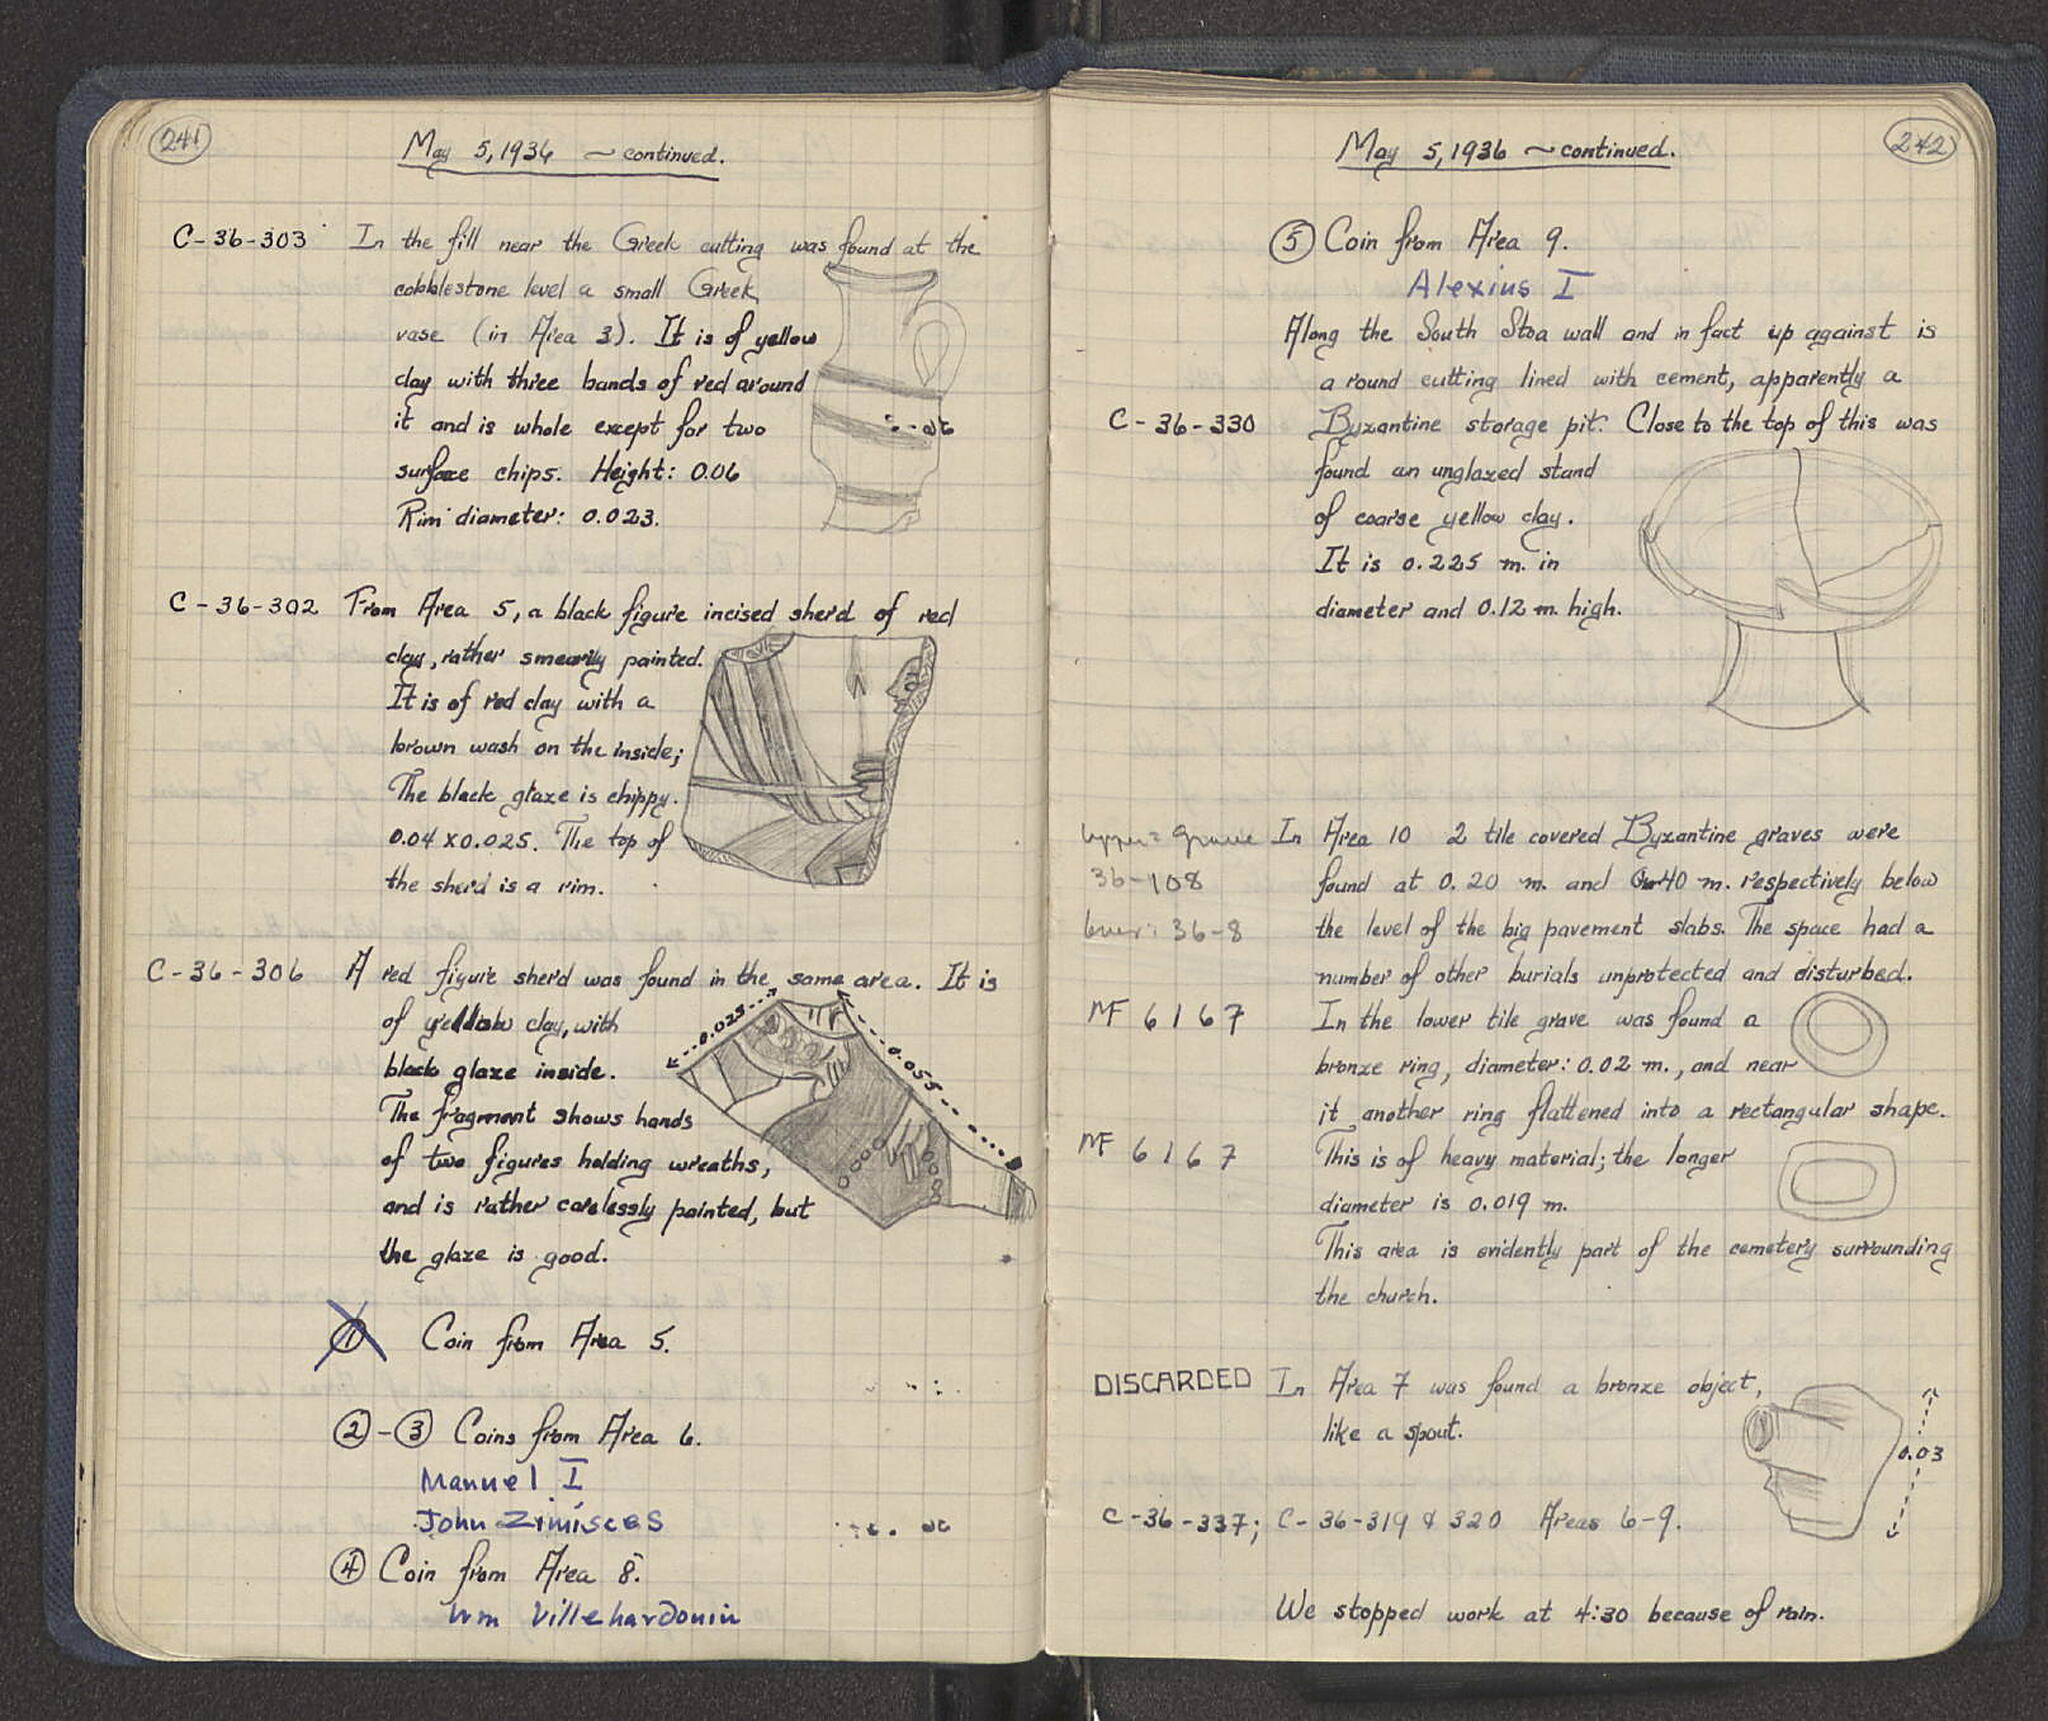 241
May 5, 1936 ~ continued.
C-36-303 In the fill near the Greek cutting was found at the
cobblestone level a small Greek
vase (in Area 3). It is of yellow
clay with three bands of red around
it and is whole except for two
surface chips. Height: 0.06
Rim diameter: 0.023.
C-36-302 From Area 5, a black figure incised sherd of red
clay, rather smearily painted.
It is of red clay with a
brown wash on the inside;
The black glaze is chippy.
0.04 x 0.025. The top of
the sherd is a rim.
C-36-306 A red figure sherd was found in the same area. It is
of yellow clay, with
black glaze inside.
The fragment shows hands
of two figures holding wreaths,
and is rather carelessly painted, but
the glaze is good.
0.025
0.055
1 Coin from Area 5.
2-3 Coins from Area 6.
Manuel I
John Zimisces
4 Coin from Area 8.
Wm Villehardouin
242
May 5, 1936 ~ continued.
5 Coin from Area 9.
Alexius I
Along the South Stoa wall and in fact up against is
a round cutting lined with cement, apparently a
C-36-330 Byzantine storage pit. Close to the top of this was
found an unglazed stand
of coarse yellow clay.
It is 0.225 m. in
diameter and 0.12 m. high.
upper = grave In Area 10 2 tile covered Byzantine graves were
36-108 found at 0.20 m. and 0.40 m. respectively below
lower: 36-8 the level of the big pavement slabs. The space had a
number of other burials unprotected and disturbed.
MF 6167 In the lower tile grave was found a
bronze ring, diameter: 0.02 m., and near
it another ring flattened into a rectangular shape.
MF 6167 This is of heavy material; the longer
diameter is 0.019 m.
This area is evidently part of the cemetery surrounding
the church.
DISCARDED In Area 7 was found a bronze object,
like a spout.
0.03
C-36-337; C-36-319 & 320 Areas 6-9.
We stopped work at 4:30 because of rain.